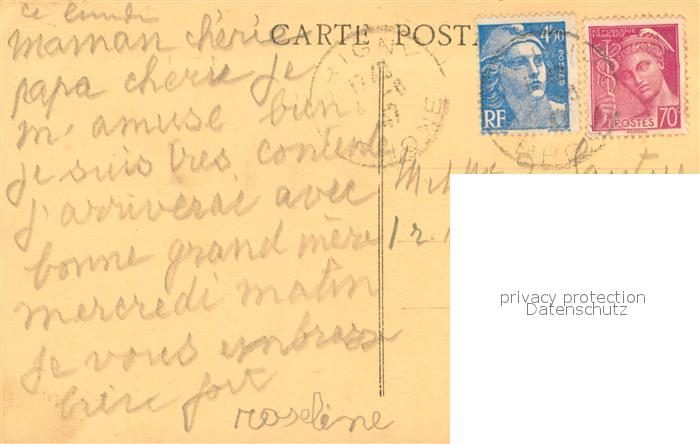 ce lundi
CARTE POSTA
maman chérie
papa cherie Je
m'amuse bien
Je suis tres contente
J'arriverai avec
bonne grand mère
mercredi matin
Je vous embrasse
bien fort
roseline
4F50
POSTES
RF
RÉPUBLIQUE
FRANÇAISE
POSTES 70c
RHONE
RHONE
privacy protection
Datenschutz